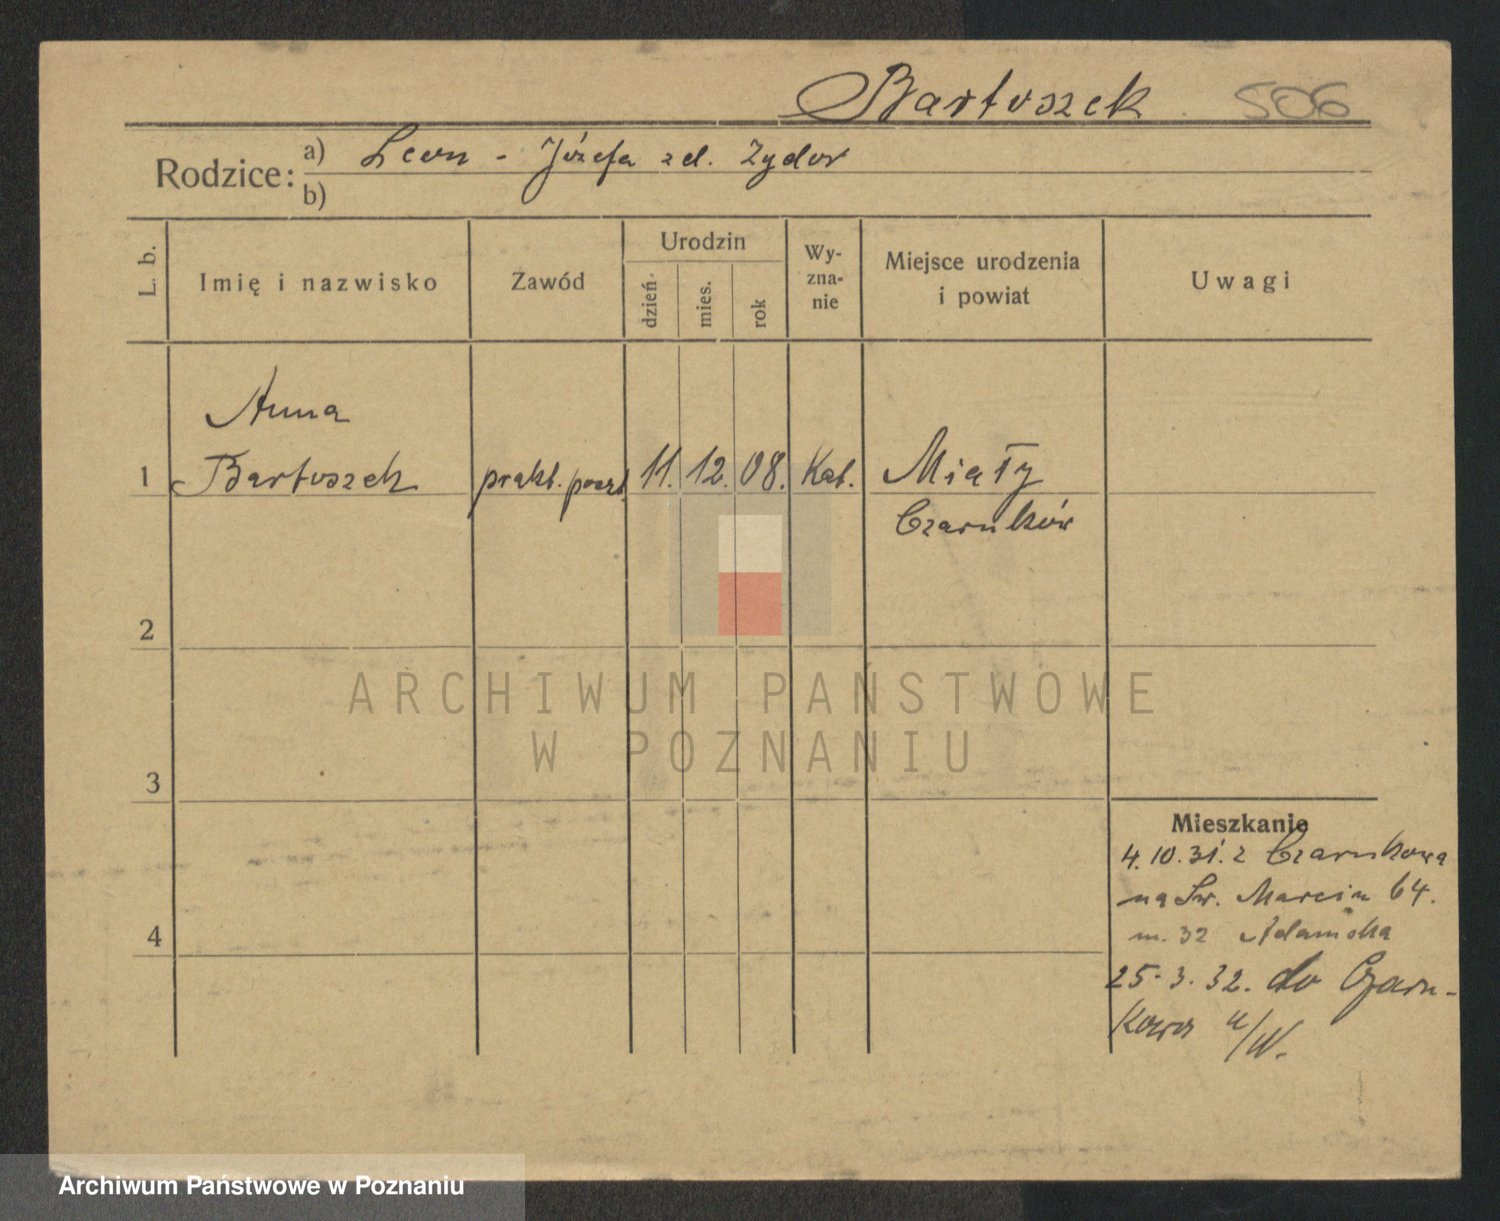 Bartoszek 506
Rodzice: a) Leon - Józefa zd. Zydor
b)
L. b. Imię i nazwisko Zawód Urodzin dzień mies. rok Wyzna-nie Miejsce urodzenia i powiat Uwagi
Anna
1 Bartoszek prakt. poczt. 11. 12. 08. Kat. Miały
Czarnków
2
ARCHIWUM PAŃSTWOWE
W POZNANIU
3
Mieszkanie
4.10.31. z Czarnkowa
na Św. Marcin 64.
4 m. 32 Adamska
25.3.32. do Czarn-
kowa n/N.
Archiwum Państwowe w Poznaniu